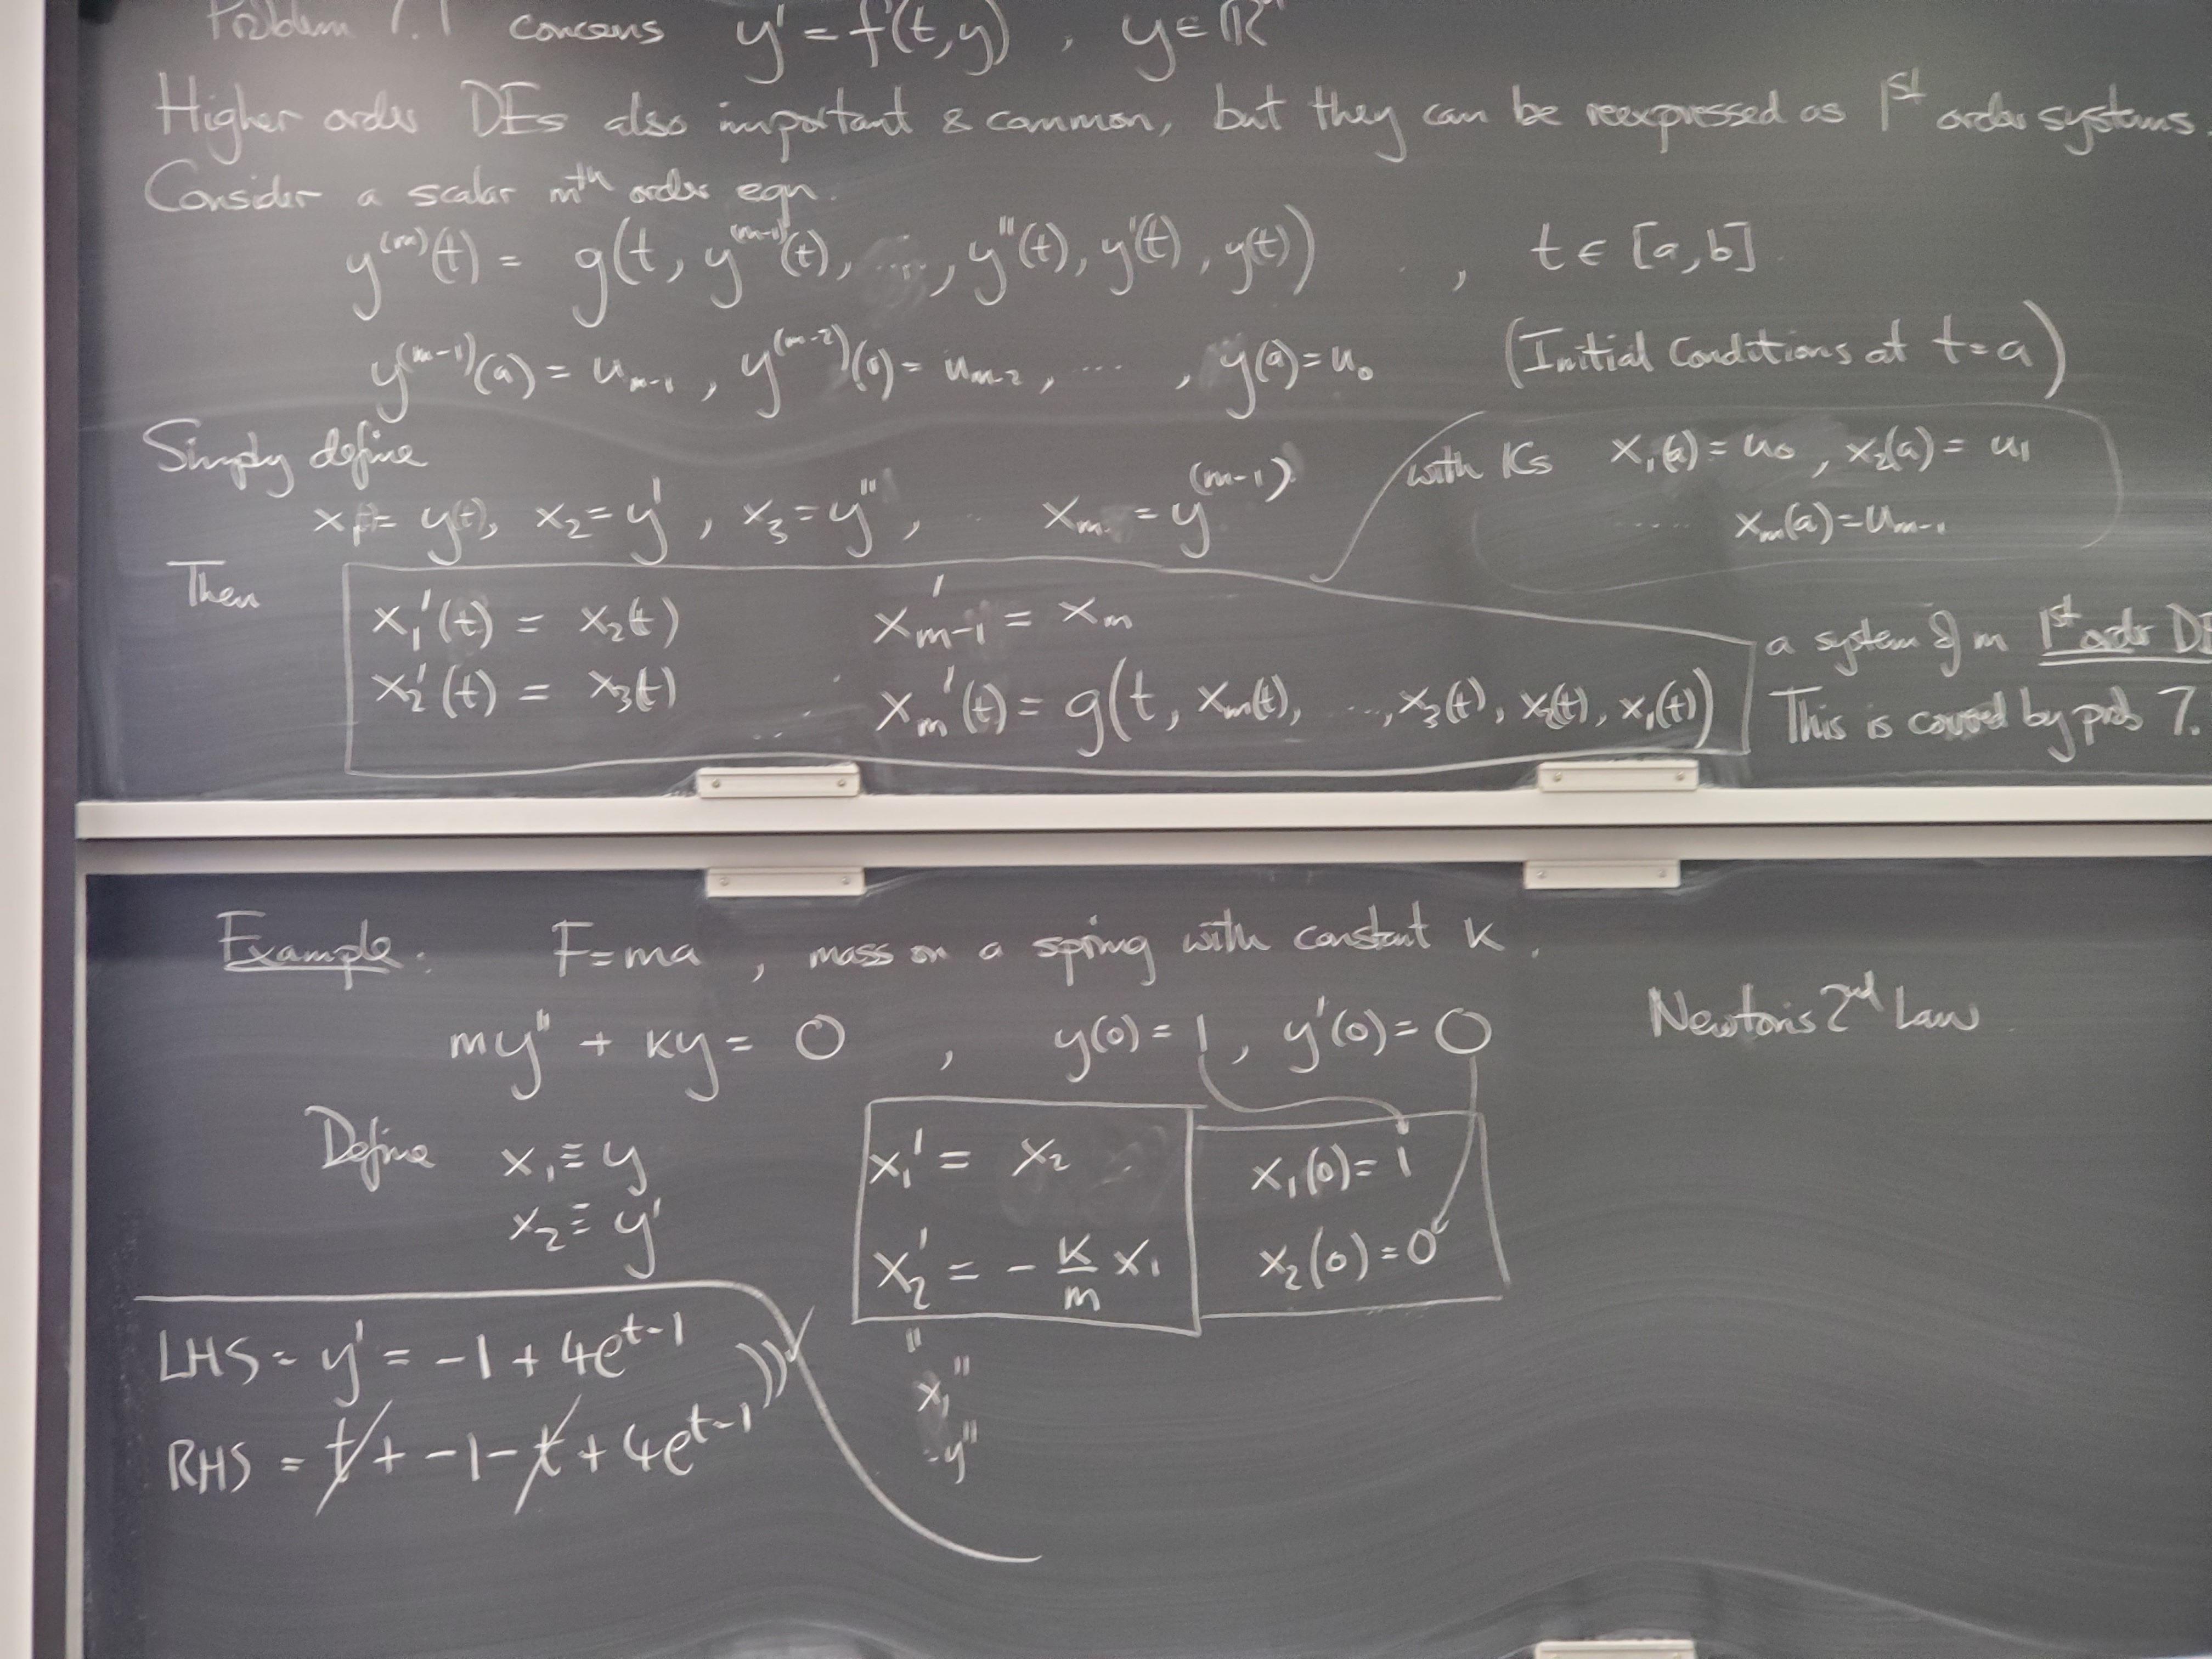 Problem 7.1 concerns y' = f(t,y) , y ∈ ℝⁿ
Higher order DEs also important & common, but they can be reexpressed as 1st order systems.
Consider a scalar mth order eqn.
y^(m)(t) = g(t, y^(m-1)(t), ..., y''(t), y'(t), y(t)) , t ∈ [a,b]
y^(m-1)(a) = u_{m-1} , y^(m-2)(0) = u_{m-2} , .... , y(a) = u₀ (Initial Conditions at t=a)
Simply define
x₁ = y(t), x₂ = y' , x₃ = y'' , .. x_m = y^(m-1)
with ICs x₁(a) = u₀ , x₂(a) = u₁
..... x_m(a) = u_{m-1}
Then
x₁'(t) = x₂(t) x'_{m-1} = x_m
x₂'(t) = x₃(t) ... x_m'(t) = g(t, x_m(t), ..., x₃(t), x₂(t), x₁(t))
a system of m 1st order DE
This is covered by prob 7.
Example: F=ma , mass on a spring with constant K .
my'' + Ky = 0 , y(0) = 1 , y'(0) = 0 Newton's 2nd Law
Define x₁ ≡ y x₁' = x₂ x₁(0) = 1
x₂ ≡ y' x₂' = - K/m x₁ x₂(0) = 0
"
x₁''
y''
LHS = y' = -1 + 4e^{t-1}
RHS = t + -1 - t + 4e^{t-1}